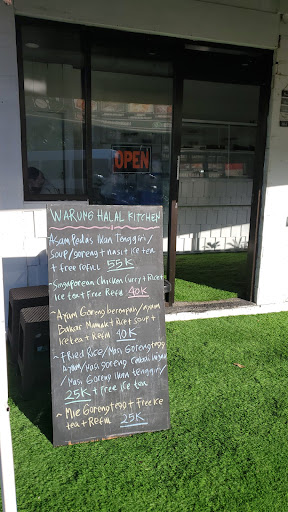 OPEN
WARUNG HALAL KITCHEN
Asam Pedas Ikan Tenggiri/
Soup/goreng + nasi + ice tea
+ free refill 55K
Singaporean Chicken Curry + Rice +
Ice tea + Free Refill 40K
~ Ayam Goreng berempah/ayam
Bakar Mamak + Rice + soup +
Ice tea + Refill 40K
~ Fried Rice/Nasi Goreng telor
Ayam/Nasi goreng
/Nasi Goreng Ikan tenggiri
25K + Free Ice tea
~ Mie Goreng telor + Free Ice
tea + Refill 25K